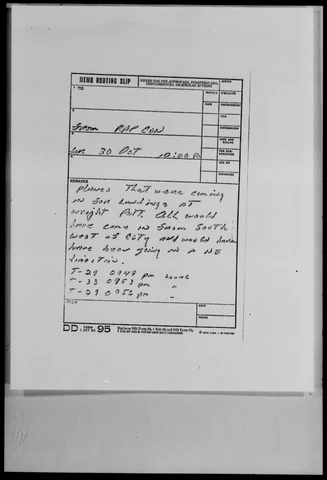 MEMO ROUTING SLIP
NEVER USE FOR APPROVALS, DISAPPROVALS, CONCURRENCES, OR SIMILAR ACTIONS
ACTION
1 TO
INITIALS
CIRCULATE
DATE
COORDINATION
2
FILE
From RAPCON
INFORMATION
3
NOTE AND RETURN
Sun 30 Oct
PER CONVERSATION
4
SEE ME
SIGNATURE
REMARKS
Planes that were coming
in for landings at
Wright Patt. All would
have come in from South
west of city and would have
have been going in a NE
direction.
T-29 0949 pm
T-33 0953 pm "
T-29 0956 pm "
FROM
DATE
PHONE
DD FORM 95